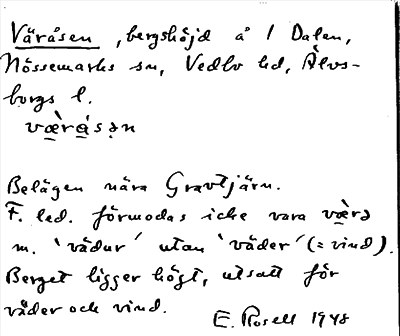 Väråsen, bergshöjd å 1 Dalen,
Nössemarks sn, Vedbo hd, Älvs-
borgs l.
væ̀rás̥ən
Belägen nära Gravtjärn.
F. led. förmodas icke vara væ̀rə
m. 'vädur' utan 'väder' (= vind).
Berget ligger högt, utsatt för
väder och vind.
E. Rosell 1948